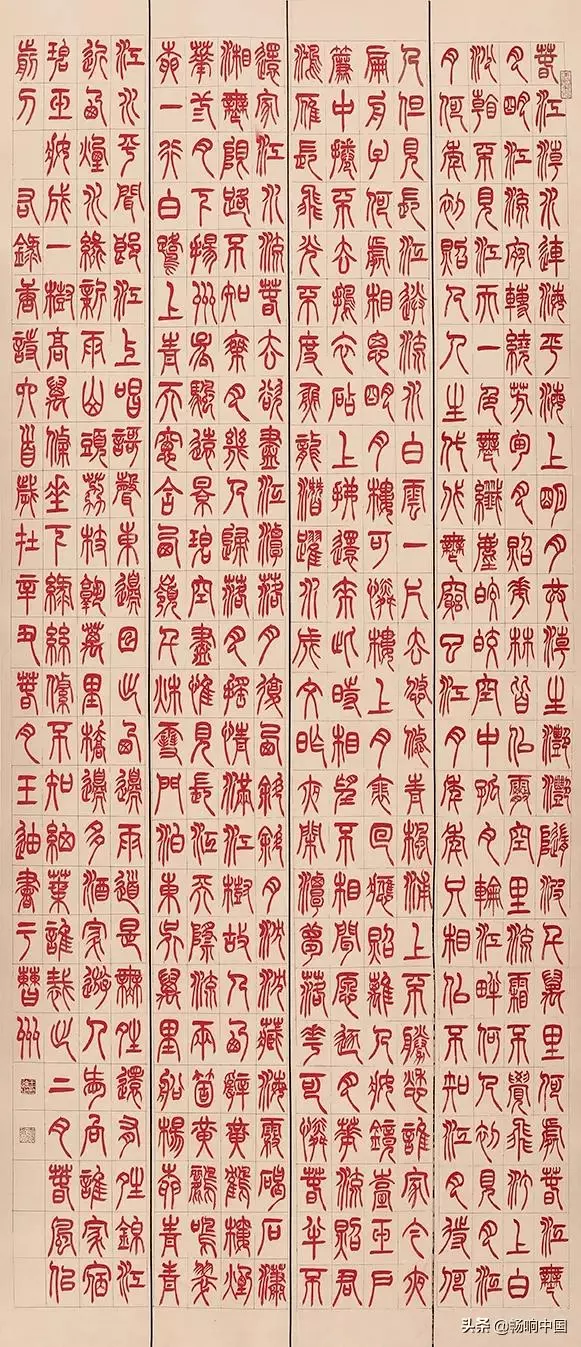 春江潮水連海平海上明月共潮生灩灩隨波千萬里何處春江無
月明江流宛轉繞芳甸月照花林皆似霰空里流霜不覺飛汀上白
沙看不見江天一色無纖塵皎皎空中孤月輪江畔何人初見月江
月何年初照人人生代代無窮已江月年年只相似不知江月待何
人但見長江送流水白雲一片去悠悠青楓浦上不勝愁誰家今夜
扁舟子何處相思明月樓可憐樓上月徘徊應照離人妝鏡臺玉戶
簾中捲不去搗衣砧上拂還來此時相望不相聞願逐月華流照君
鴻雁長飛光不度魚龍潛躍水成文昨夜閒潭夢落花可憐春半不
還家江水流春去欲盡江潭落月復西斜斜月沉沉藏海霧碣石瀟
湘無限路不知乘月幾人歸落月搖情滿江樹故人西辭黃鶴樓煙
花三月下揚州孤帆遠影碧空盡惟見長江天際流兩箇黃鸝鳴翠
柳一行白鷺上青天窗含西嶺千秋雪門泊東吳萬里船楊柳青青
江水平聞郎江上唱謌聲東邊日出西邊雨道是無晴還有晴錦江
近西煙水綠新雨山頭荔枝熟萬里橋邊多酒家遊人愛向誰家宿
碧玉妝成一樹高萬條垂下綠絲絛不知細葉誰裁出二月春風似
剪刀
右錄唐詩六首歲在辛丑春月王迪書于曹州
头条 @畅响中国